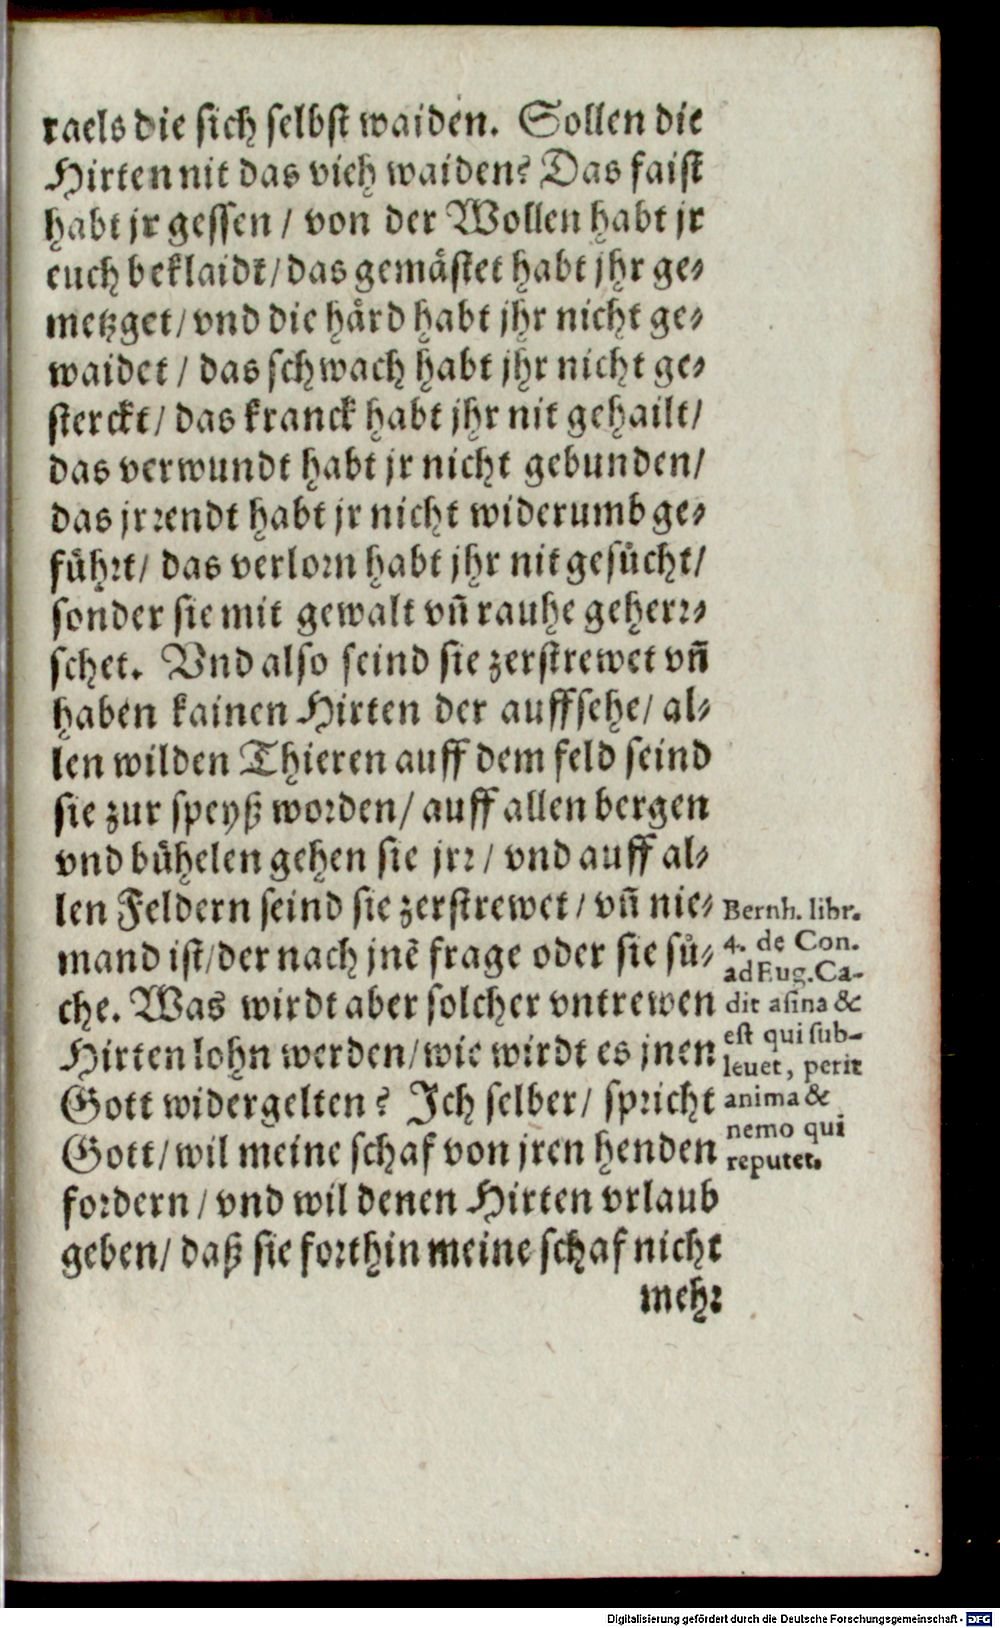 raels die sich selbst waiden. Sollen die
Hirten nit das vieh waiden? Das faist
habt jr gessen / von der Wollen habt jr
euch beklaidt / das gemästet habt jhr ge-
metzget / vnd die härd habt jhr nicht ge-
waidet / das schwach habt jhr nicht ge-
sterckt / das kranck habt jhr nit gehailt /
das verwundt habt jr nicht gebunden /
das jrrendt habt jr nicht widerumb ge-
führt / das verlorn habt jhr nit gesůcht /
sonder sie mit gewalt vñ rauhe geherr-
schet. Vnd also seind sie zerstrewet vñ
haben kainen Hirten der auffsehe / al-
len wilden Thieren auff dem feld seind
sie zur speyß worden / auff allen bergen
vnd bühelen gehen sie jrr / vnd auff al-
len Feldern seind sie zerstrewet / vñ nie-
mand ist / der nach jnẽ frage oder sie sů-
che. Was wirdt aber solcher vntrewen
Hirten lohn werden / wie wirdt es jnen
Gott widergelten? Ich selber / spricht
Gott / wil meine schaf von jren henden
fordern / vnd wil denen Hirten vrlaub
geben / daß sie forthin meine schaf nicht
mehr
Bernh. libr.
4. de Con.
ad Eug. Ca-
dit asina &
est qui sub-
leuet, perit
anima &
nemo qui
reputet.
Digitalisierung gefördert durch die Deutsche Forschungsgemeinschaft - DFG